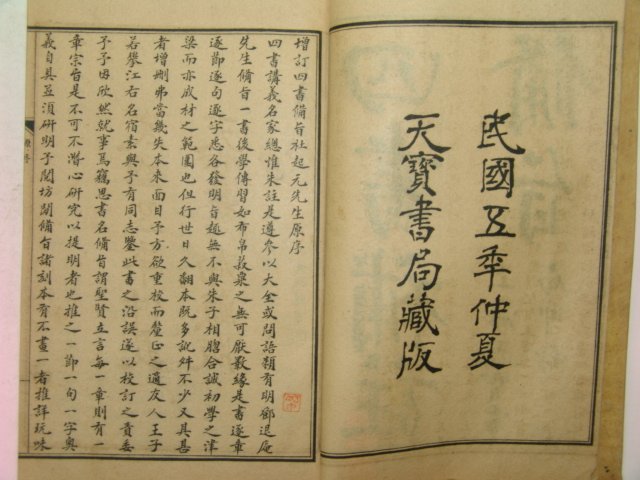 民國五年仲夏
天寶書局藏版
增訂四書備旨杜起元先生原序
四書講義名家總惟朱註是遵參以大全或問語類有明鄧退庵
先生備旨一書後學傳習如布帛菽粟之無可厭斁緣是書逐章
逐節逐句逐字悉各發明旨趣無不與朱子相脗合誠初學之津
梁而亦成材之範圍也但行世日久翻本既多訛舛不少又其甚
者增刪弗當幾失本來面目予方欲重校而釐正之適友人王子
若攀江右名宿素與予有同志鑒此書之沿誤遂以校訂之責委
予予因欣然就事焉竊思書名備旨謂聖賢立言每一章則有一
章宗旨是不可不潛心研究以提明者也推之一節一句一字奧
義自具並須研明予閱坊間備旨諸刻本有不畫一者推詳玩味
原序